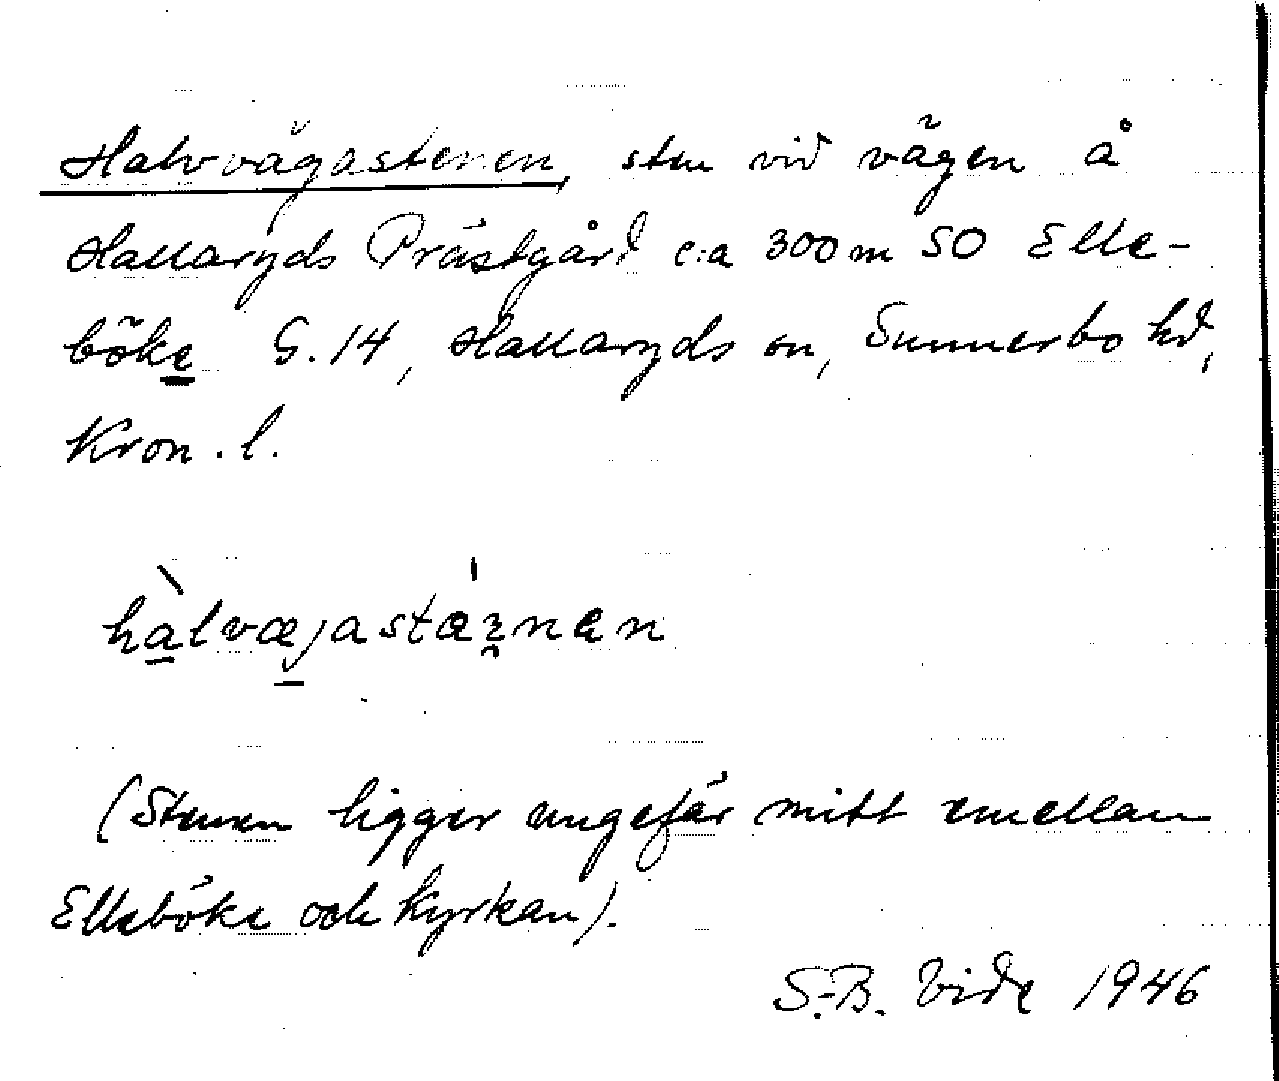 Halvvägastenen, sten vid vägen å
Hallaryds Prästgård c:a 300 m SO Elle-
böke G.14, Hallaryds sn, Sunnerbo hd,
Kron. l.
hàlvæjastáɪnan
(Stenen ligger ungefär mitt emellan
Elleböke och kyrkan).
S.-B. Vide 1946